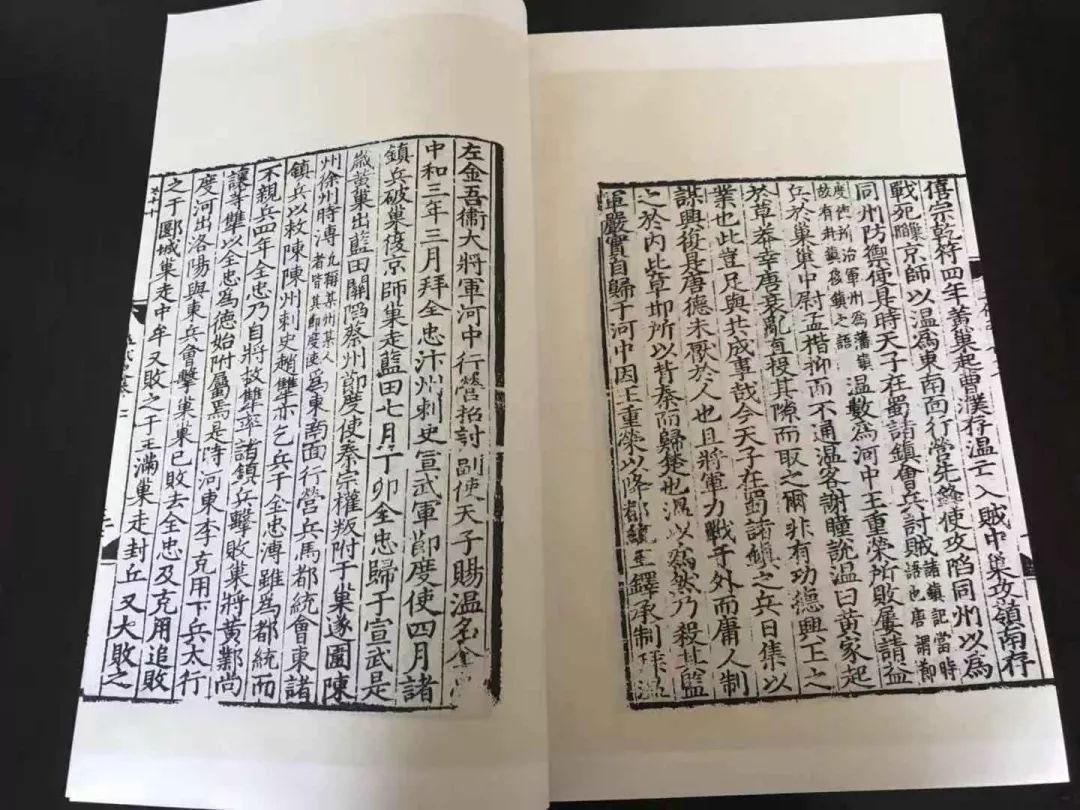 僖宗乾符四年黄巢起曹濮存温亡入賊中巢攻嶺南存
戰死巢陷京師以温為東南面行營先鋒使攻陷同州以為
同州防禦使是時天子在蜀諸鎮會兵討賊諸鎮記當時語也唐謂節
度使所治軍州為藩鎮故有赴鎮移鎮之語温數為河中王重榮所敗屢請益
兵於巢巢中尉孟楷抑而不通温客謝瞳說温曰黄家起
於草莽幸唐衰亂直投其隙而取之爾非有功德興王之
業也此豈足與共成事哉今天子在蜀諸鎮之兵日集以
謀興復是唐德未厭於人也且將軍力戰于外而庸人制
之於内此章邯所以背秦而歸楚也温以為然乃殺其監
軍嚴實自歸于河中因王重榮以降都統王鐸承制拜温
左金吾衛大將軍河中行營招討副使天子賜温名全
中和三年三月拜全忠汴州刺史宣武軍節度使四月諸
鎮兵破巢復京師巢走藍田七月丁卯全忠歸于宣武是
歲黄巢出藍田關陷蔡州節度使秦宗權叛附于巢遂圍陳
州徐州時溥凡稱某州某人者皆其節度使為東南面行營兵馬都統會東諸
鎮兵以救陳陳州刺史趙犨亦乞兵于全忠溥雖為都統而
不親兵四年全忠乃自將救犨率諸鎮兵擊敗巢將黄鄴尚
讓等犨以全忠為德始附屬焉是時河東李克用下兵太行
度河出洛陽與東兵會擊巢巢已敗去全忠及克用追敗
之于郾城巢走中牟又敗之于王滿巢走封丘又大敗之